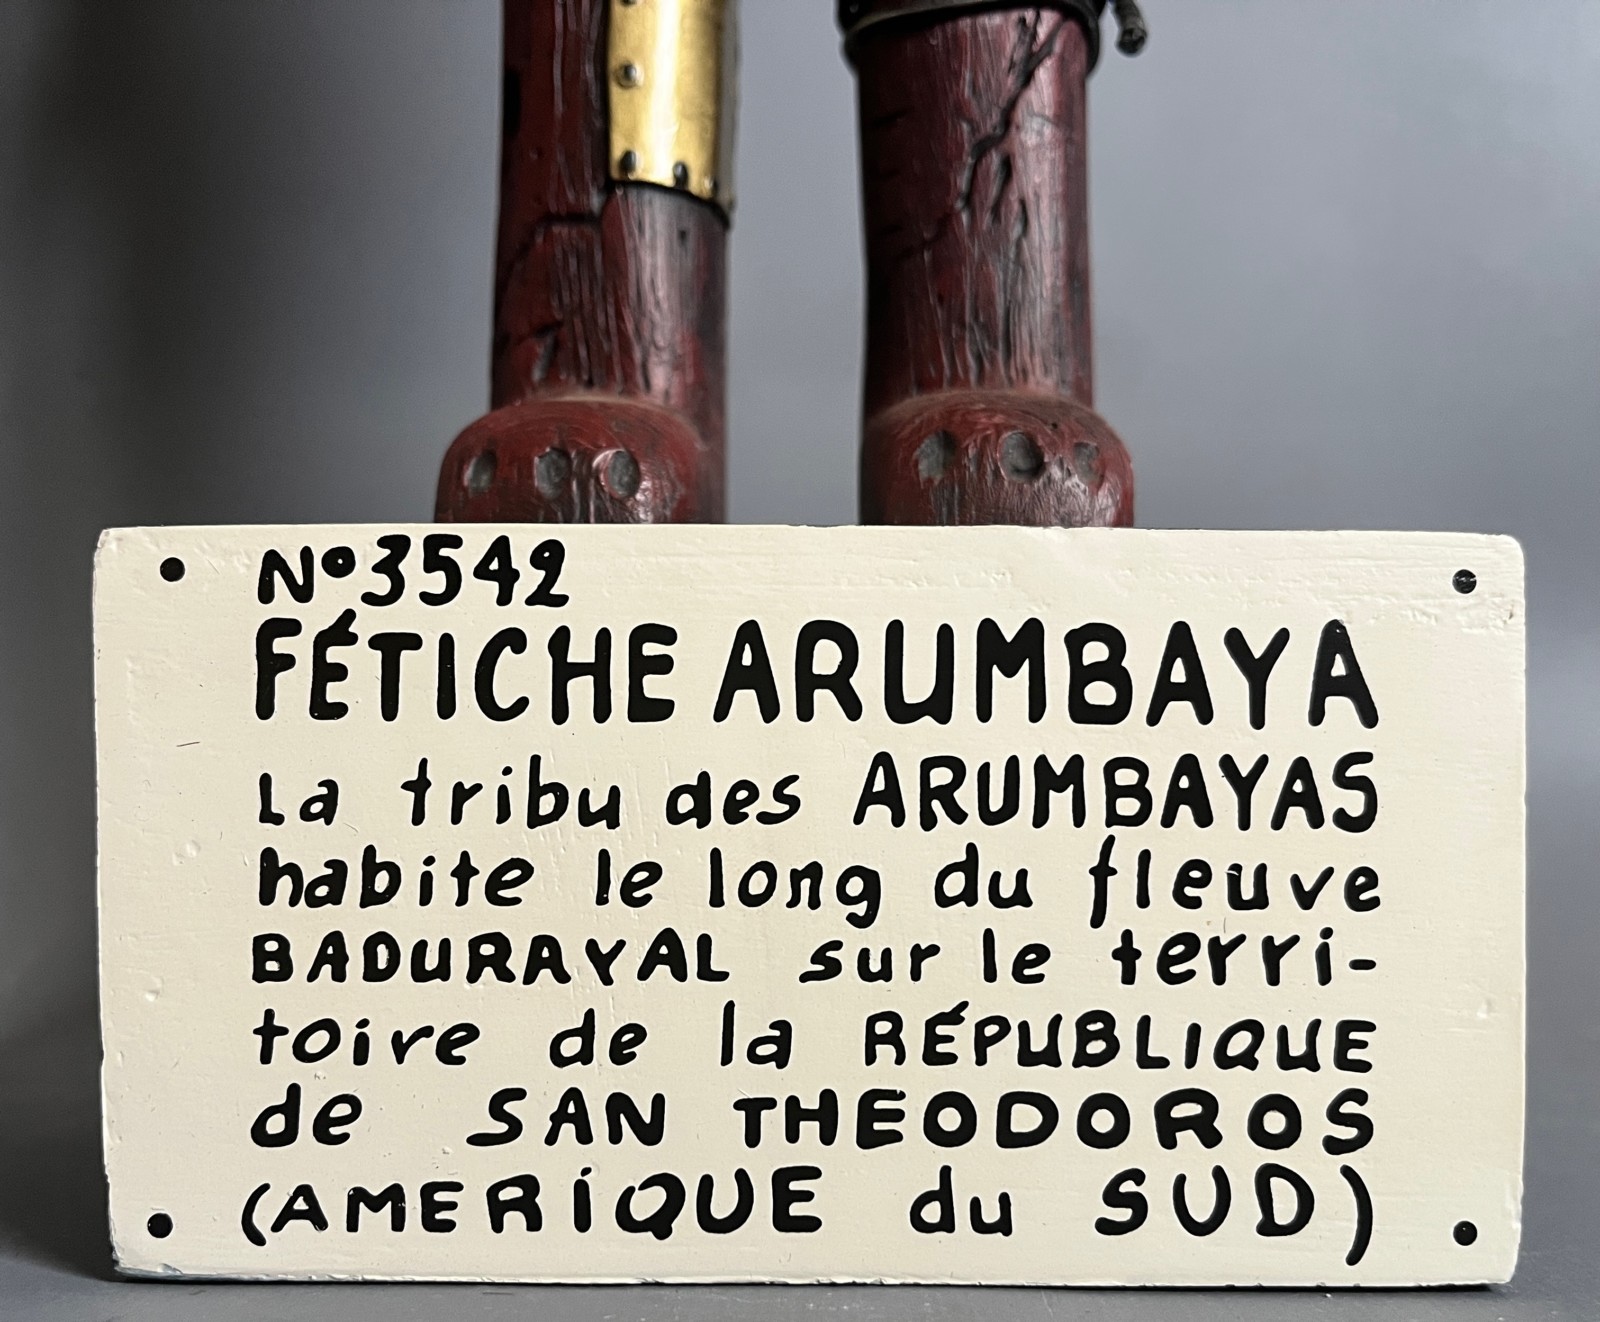 N°3542
FÉTICHE ARUMBAYA
La tribu des ARUMBAYAS
habite le long du fleuve
BADURAYAL sur le terri-
toire de la RÉPUBLIQUE
de SAN THEODOROS
(AMERIQUE du SUD)